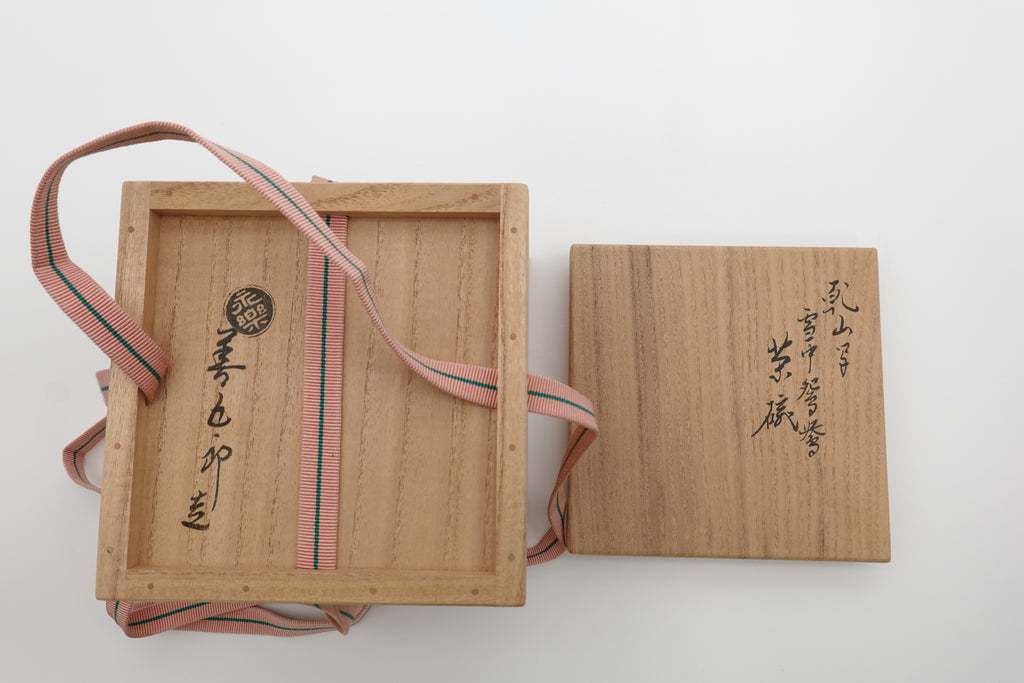 乾山写
雪中鴛鴦
茶碗
永樂
善五郎造